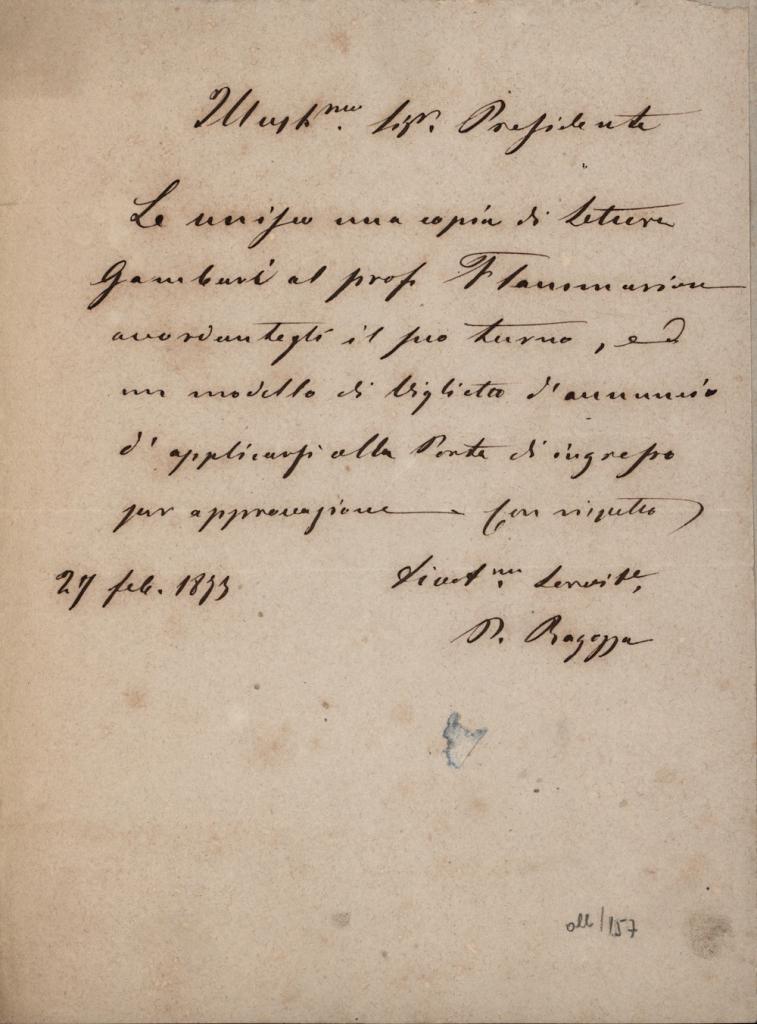 Illustr.mo Sigr. Presidente
Le unisco una copia di lettera
Gambari al prof Flammarion
accordantegli il suo turno, ed
un modello di Viglietto d'annuncio
d'applicarsi alla Porta di ingresso
per approvazione — Con rispetto
27 feb. 1873
Devot.mo Servit.e,
P. Ragozza
all/157